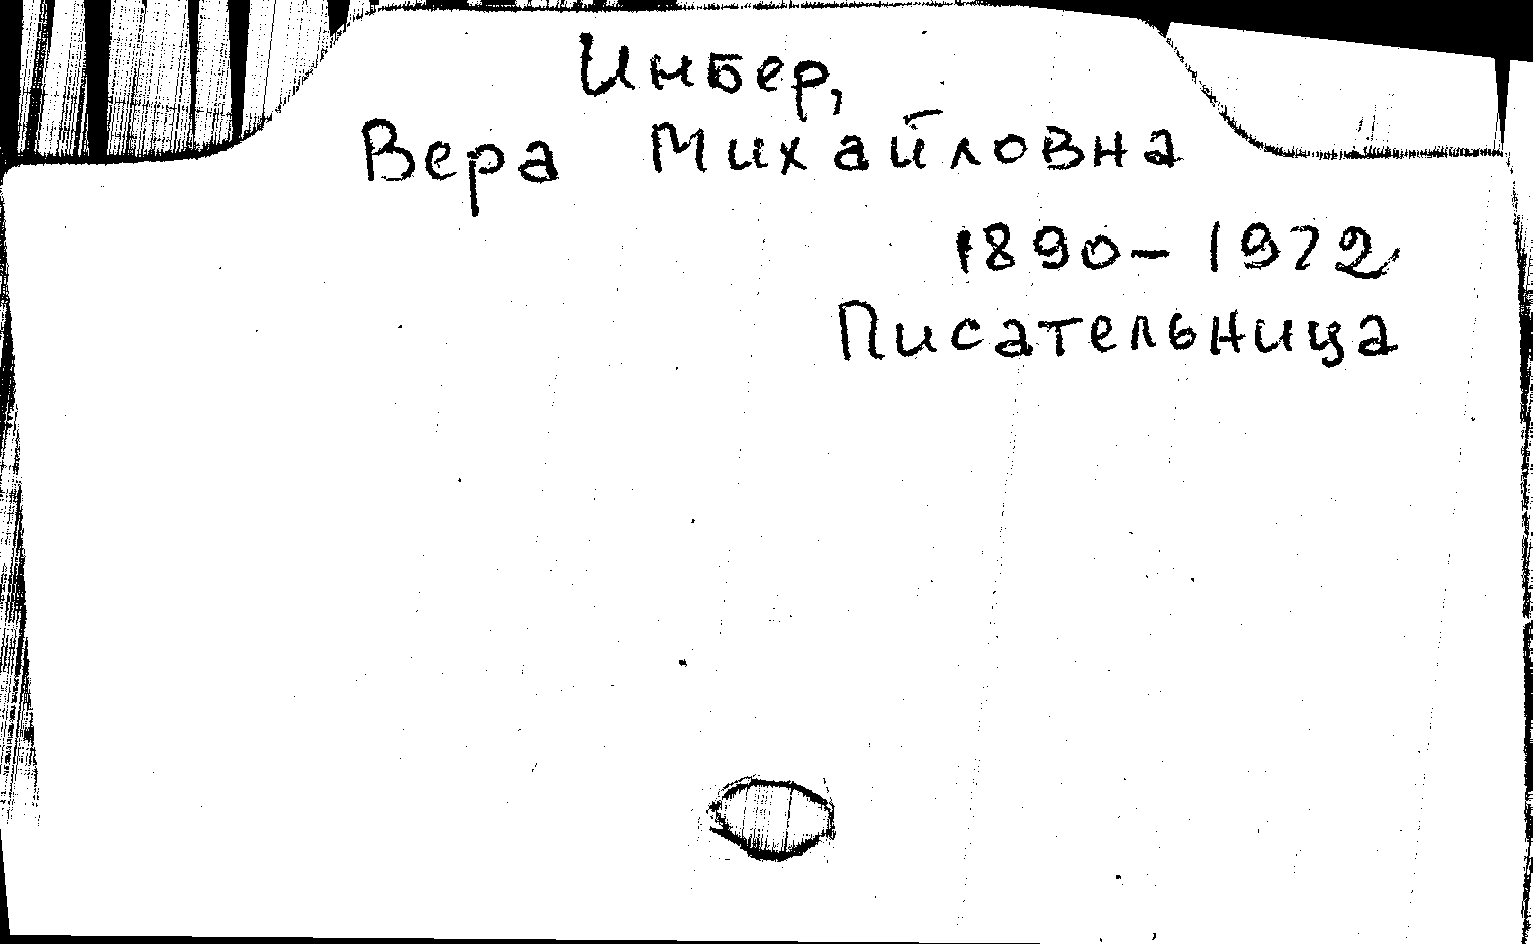 Инбер,
Вера Михайловна
1890-1972
Писательница